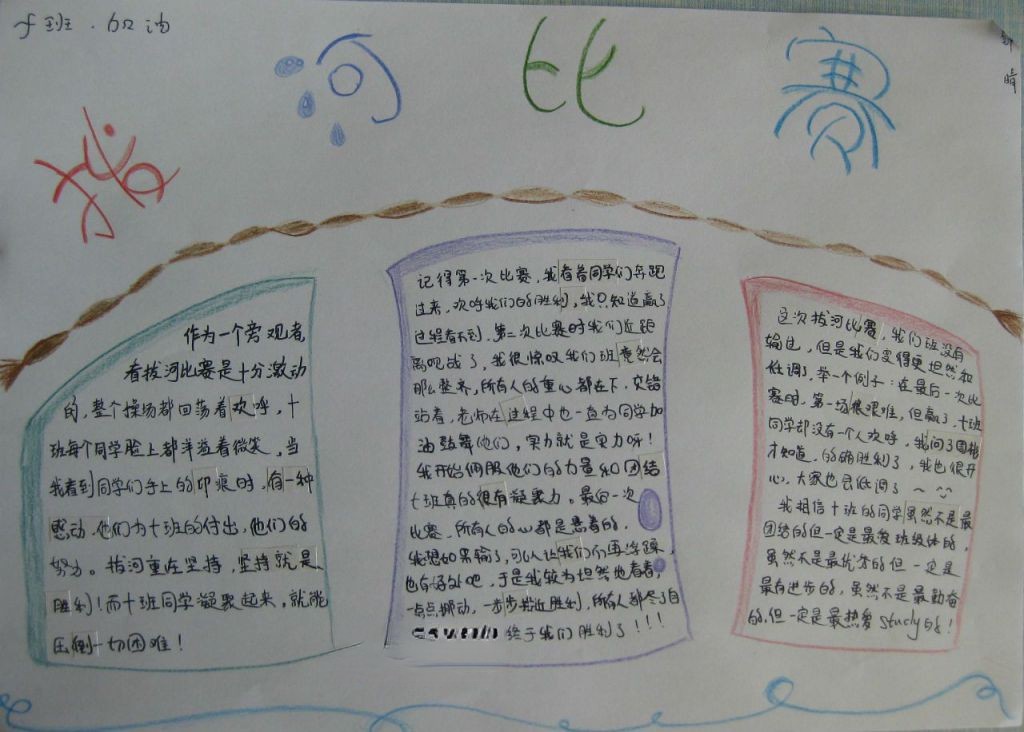 十班.加油
拔河比赛
作为一个旁观者,
看拔河比赛是十分激动
的,整个操场都回荡着欢呼,十
班每个同学脸上都洋溢着微笑,当
我看到同学们手上的印痕时,有一种
感动.他们为十班的付出,他们的
努力。拔河重在坚持,坚持就是
胜利!而十班同学凝聚起来,就能
压倒一切困难!
记得第一次比赛,我看着同学们奔跑
过来,欢呼我们的胜利,我只知道赢了
过程看不到.第二次比赛时我们近距
离观战了,我很惊叹我们班竟然会
那么整齐,所有人的重心都在下,交错
站着,老师在过程中也一直为同学加
油鼓舞他们,实力就是实力呀!
我开始佩服他们的力量和团结
十班真的很有凝聚力。最后一次
比赛,所有人的心都是悬着的,
我想如果输了,可以让我们们再浮躁,
也有好处吧,于是我较为坦然地看着,
一点点挪动,一步步接近胜利,所有人都尽了自
终于我们胜利了!!!
这次拔河比赛,我们班没有
输过,但是我们变得更坦然和
低调了,举一个例子:在最后一次比
赛时,第一场很艰难,但赢了,十班
同学却没有一个人欢呼,我问了围楠
才知道,的确胜利了,我也很开
心,大家也会低调了~
我相信十班的同学虽然不是最
团结的但一定是最爱班级体的,
虽然不是最优秀的但一定是
最有进步的,虽然不是最勤奋
的,但一定是最热爱study的!